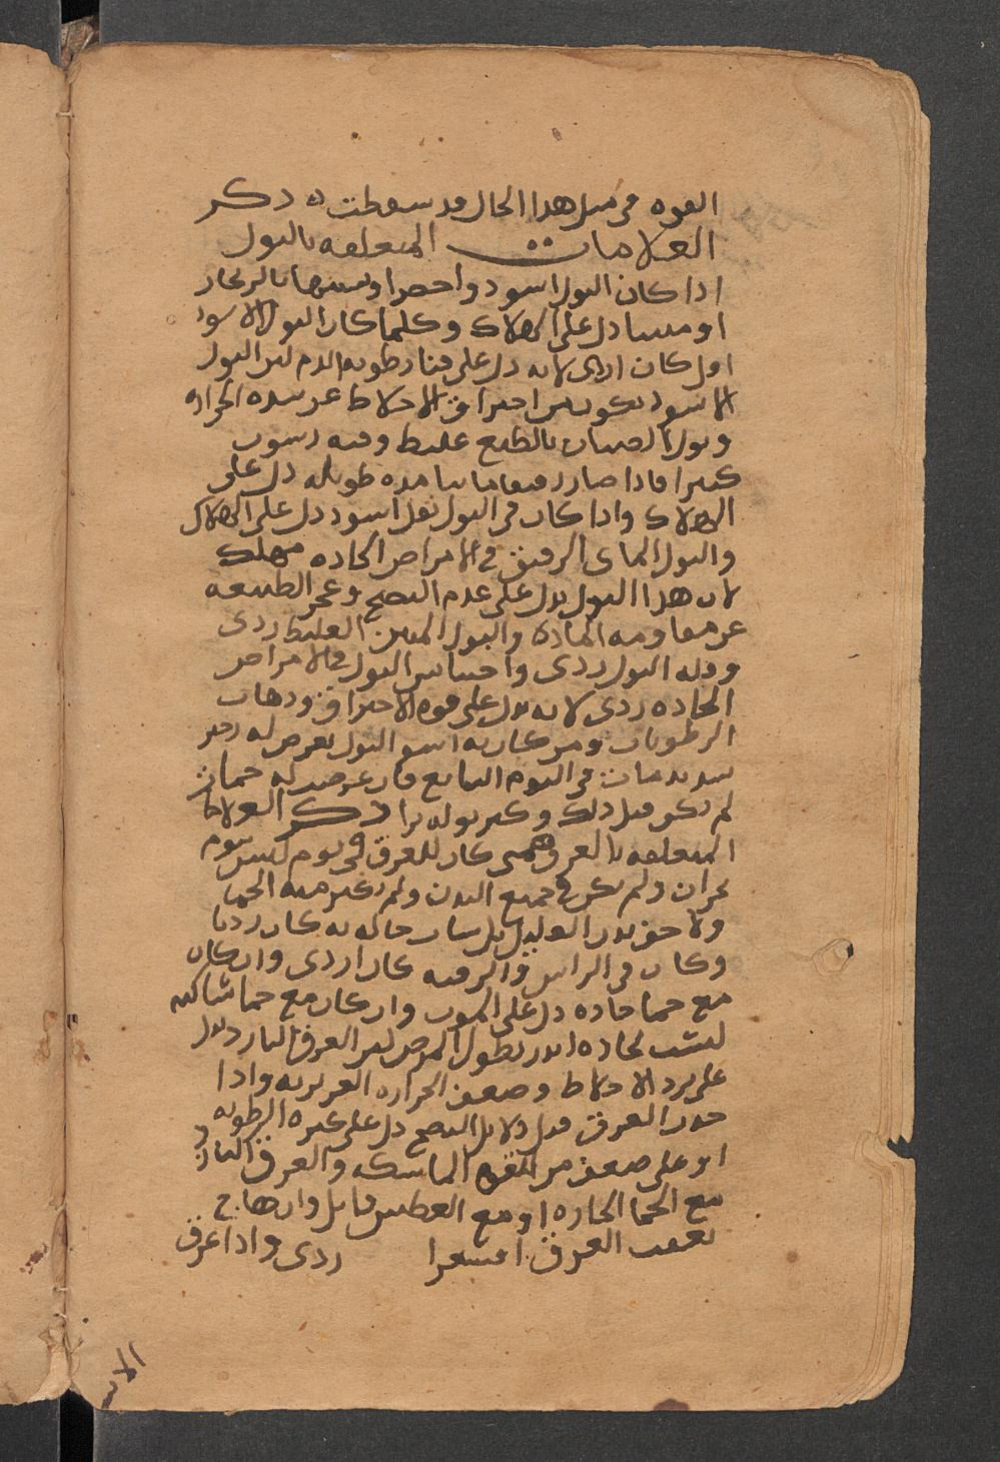 القوه في مثل هذا الحال قد سقطت ه ذكر
العلامات المتعلقه بالبول
اذا كان البول اسود واحمرا وشبيها بالزنجار
او منتنا دل على الهلاك وكلما كان البول الاسود
اقل كان اردى لانه دل على فنا رطوبه الدم لان البول
الاسود يكون من احتراق الاخلاط عن شده الحراره
وبول الصبيان بالطبع غليظ وفيه رسوب
كثيرا فاذا صار رقيقا مائيا مده طويله دل على
الهلاك واذا كان في البول ثفل اسود دل على الهلاك
والبول الماي الرقيق في الامراض الحاده مهلك
لان هذا البول يدل على عدم النضج وعجز الطبيعه
عن مقاومه الماده والبول المنتن الغليظ ردى
وقله البول ردى واحتباس البول في الامراض
الحاده ردى لانه يدل على قوه الاحتراق وذهاب
الرطوبات ومن كان به اسر البول يعرض له زحير
شديد مات في اليوم السابع فان عرضت له حما
لم تكن قبل ذلك وكثر بوله برا ذكر العلامات
المتعلقه بالعرق متى كان للعرق في يوم ليس يوم
بحران ولم يكن في جميع البدن ولم تفتر منه الحما
ولا خف بدن العليل بل ساء حاله به كان رديا
وكان في الراس والرقبه كان اردى وان كان
مع حما حاده دل على الموت وان كان مع حما ساكنه
ليست بحاده انذر بطول المرض لان العرق البارد يدل
على برد الاخلاط وضعف الحراره الغريزيه واذا
حدث العرق قبل دلايل النضج دل على كثره الرطوبه
او على ضعف من القوه الماسكه والعرق البارد
مع الحما الحاره او مع العطش قاتل وان هاج
بعقب العرق اقشعرا ردى واذا عرق